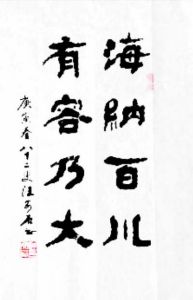 海納百川
有容乃大
庚寅春八十二叟汪